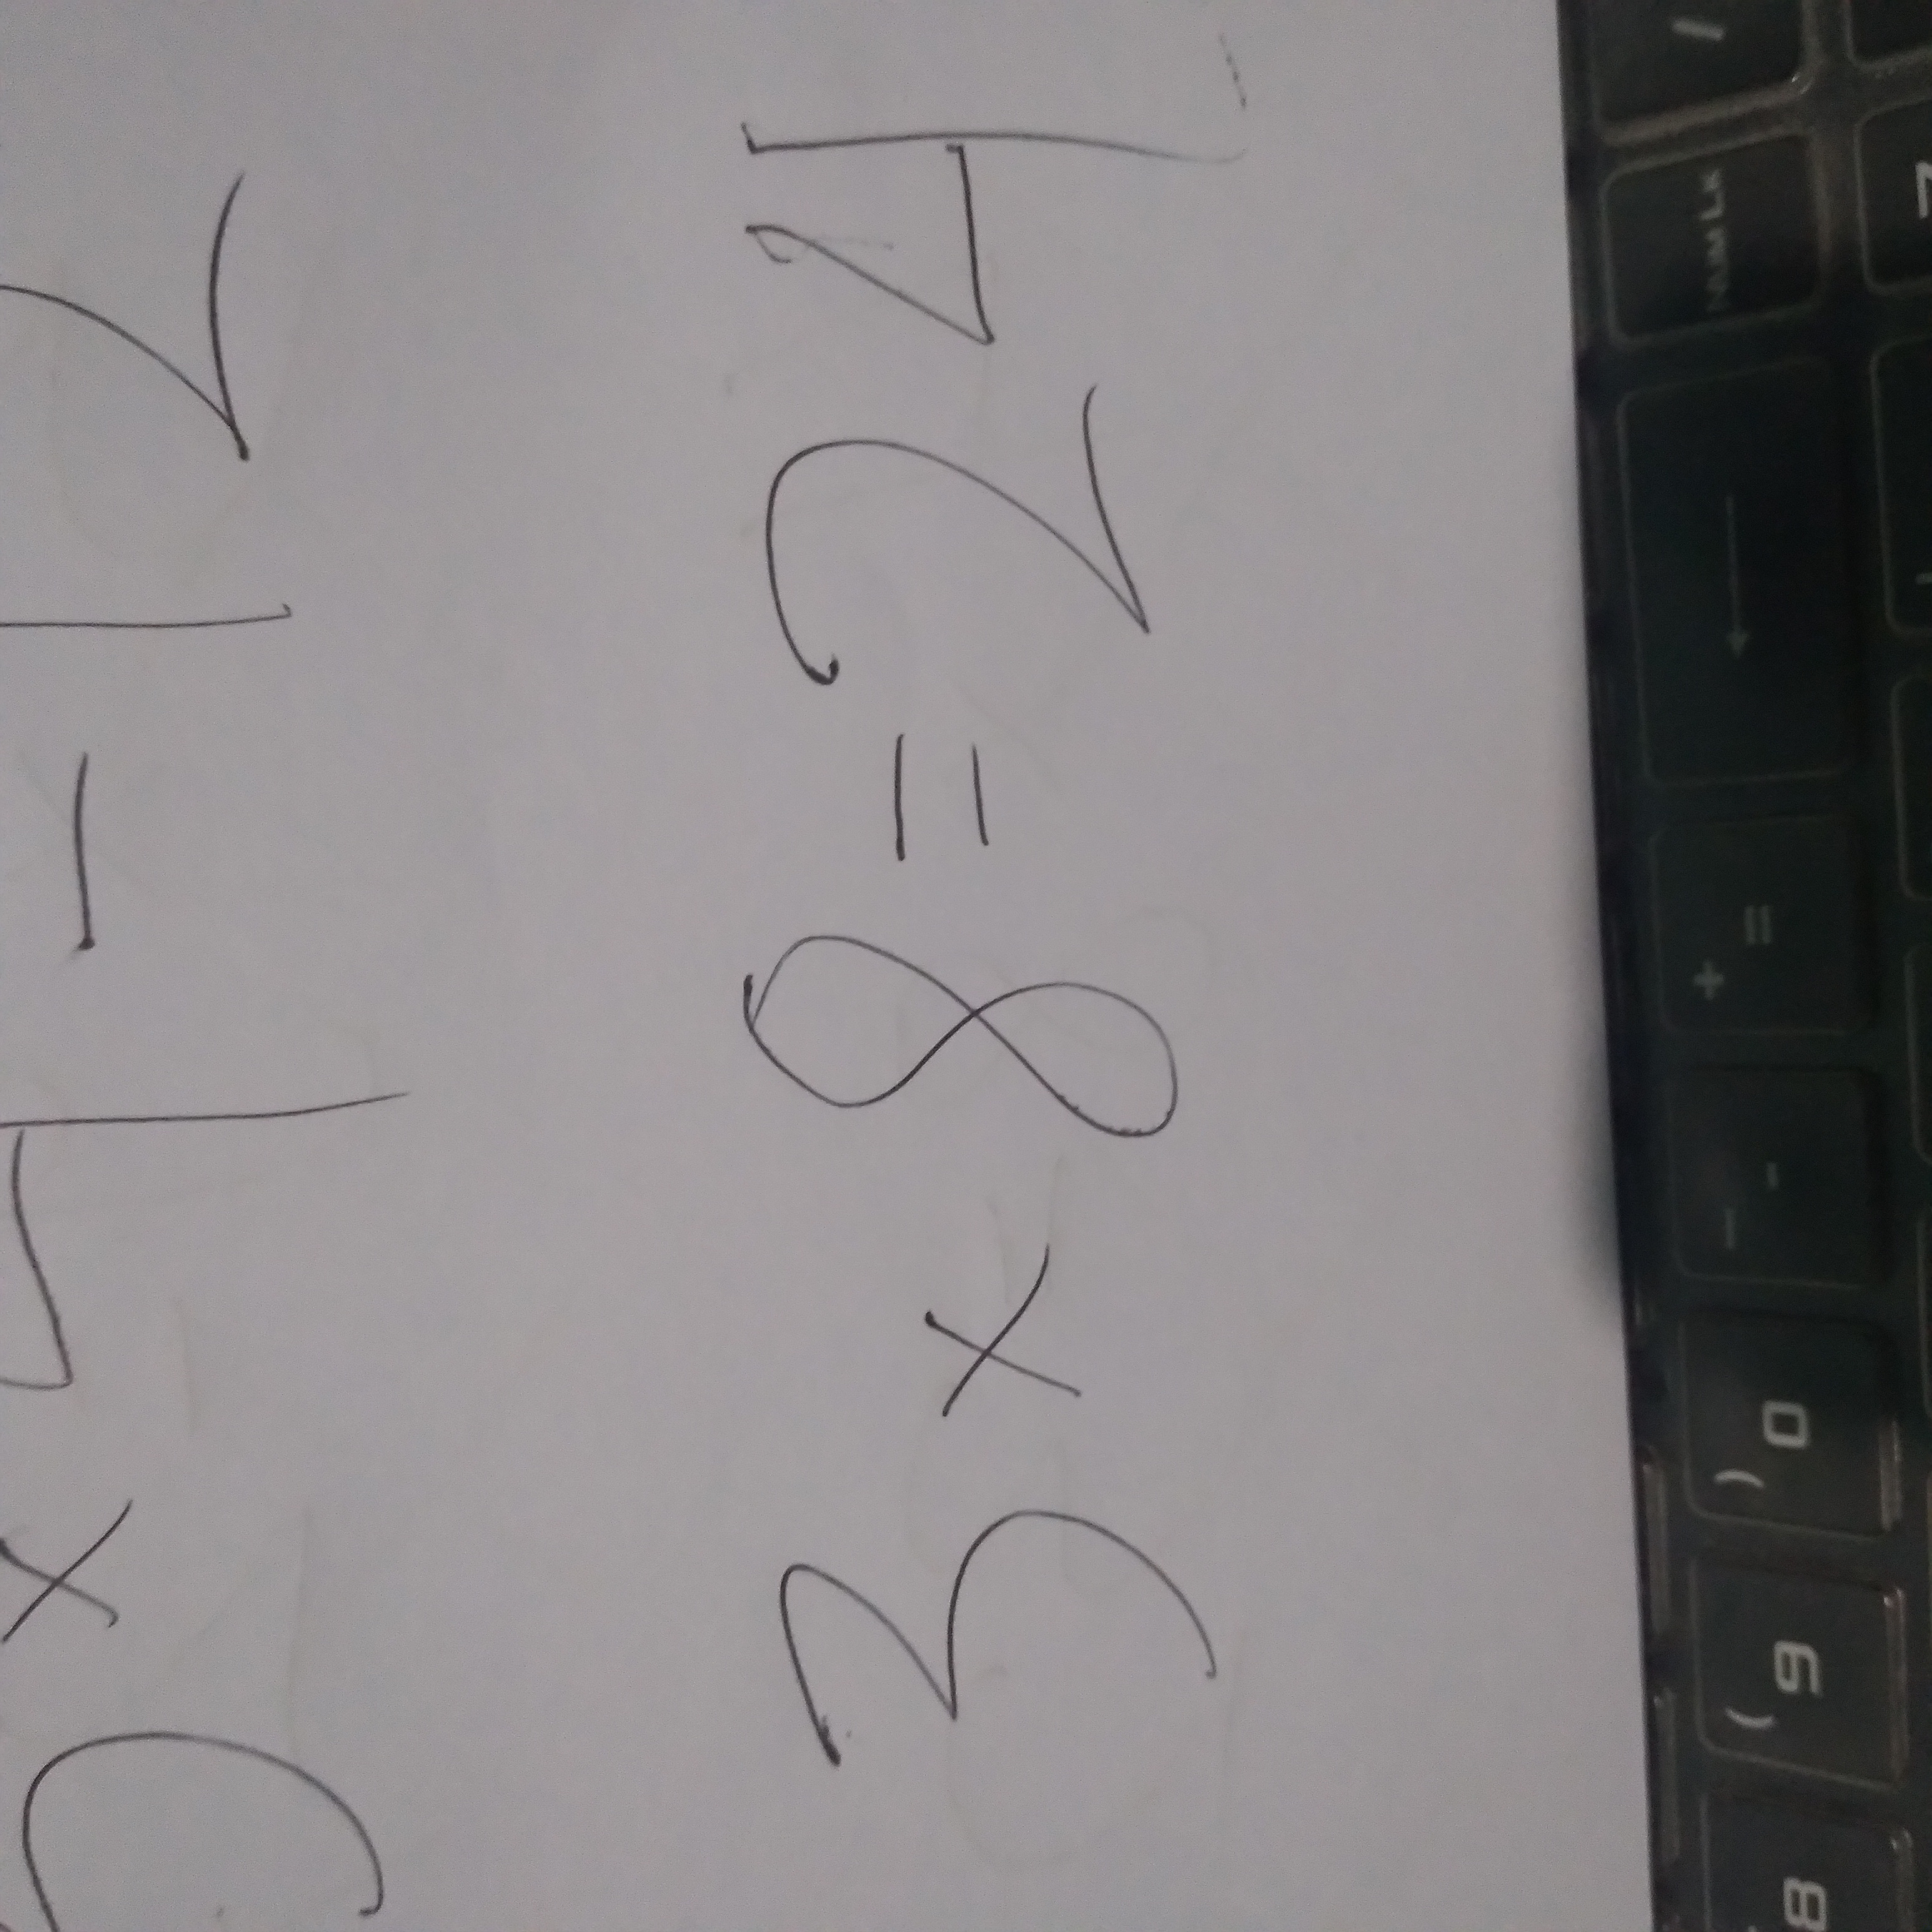 × 4 - 12
3 × 8 = 24
8
( 9
) 0
- -
+ =
←
NUM LK
/